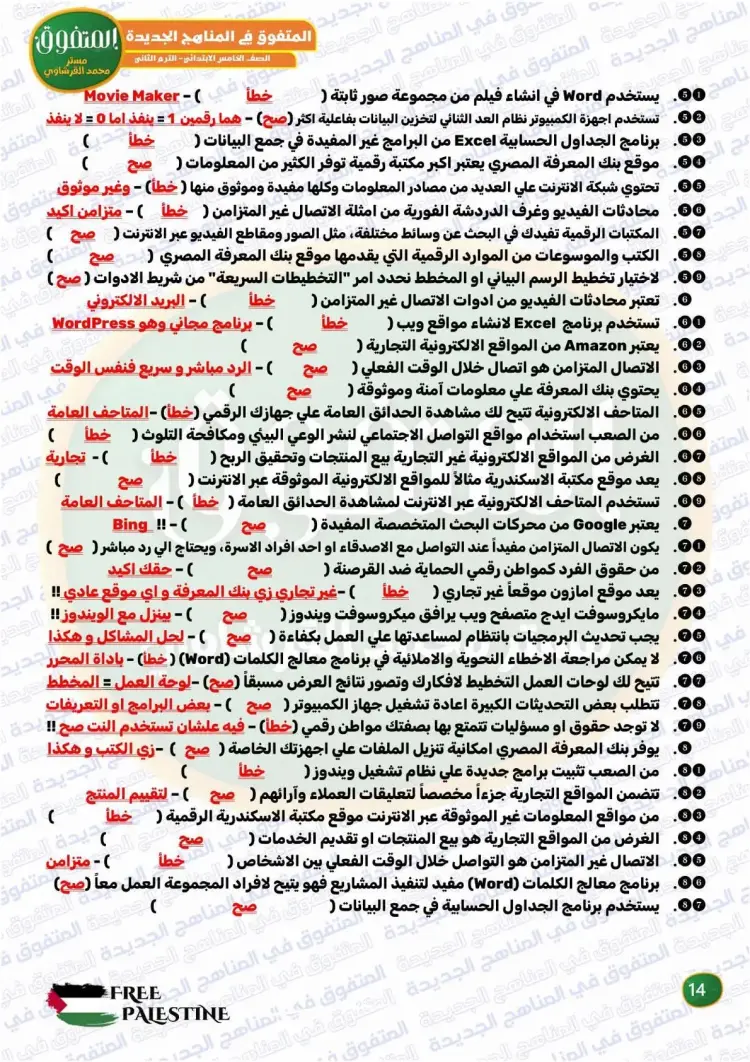 المتفوق في المناهج الجديدة
الصف الخامس الابتدائي - الترم الثاني
المتفوق
مستر
محمد القرشاوي
51. يستخدم Word في انشاء فيلم من مجموعة صور ثابتة ( خطأ ) – Movie Maker
52. تستخدم اجهزة الكمبيوتر نظام العد الثنائي لتخزين البيانات بفاعلية اكثر (صح) – هما رقمين 1 = ينفذ اما 0 = لا ينفذ
53. برنامج الجداول الحسابية Excel من البرامج غير المفيدة في جمع البيانات ( خطأ )
54. موقع بنك المعرفة المصري يعتبر اكبر مكتبة رقمية توفر الكثير من المعلومات ( صح )
55. تحتوي شبكة الانترنت علي العديد من مصادر المعلومات وكلها مفيدة وموثوق منها ( خطأ) – وغير موثوق
56. محادثات الفيديو وغرف الدردشة الفورية من امثلة الاتصال غير المتزامن ( خطأ ) – متزامن اكيد
57. المكتبات الرقمية تفيدك في البحث عن وسائط مختلفة، مثل الصور ومقاطع الفيديو عبر الانترنت ( صح )
58. الكتب والموسوعات من الموارد الرقمية التي يقدمها موقع بنك المعرفة المصري ( صح )
59. لاختيار تخطيط الرسم البياني او المخطط نحدد امر "التخطيطات السريعة" من شريط الادوات ( صح )
6. تعتبر محادثات الفيديو من ادوات الاتصال غير المتزامن ( خطأ ) – البريد الالكتروني
61. تستخدم برنامج Excel لانشاء مواقع ويب ( خطأ ) – برنامج مجاني وهو WordPress
62. يعتبر Amazon من المواقع الالكترونية التجارية ( صح )
63. الاتصال المتزامن هو اتصال خلال الوقت الفعلي ( صح ) – الرد مباشر و سريع فنفس الوقت
64. يحتوي بنك المعرفة علي معلومات آمنة وموثوقة ( صح )
65. المتاحف الالكترونية تتيح لك مشاهدة الحدائق العامة علي جهازك الرقمي (خطأ) –المتاحف العامة
66. من الصعب استخدام مواقع التواصل الاجتماعي لنشر الوعي البيئي ومكافحة التلوث ( خطأ )
67. الغرض من المواقع الالكترونية غير التجارية بيع المنتجات وتحقيق الربح ( خطأ ) - تجارية
68. يعد موقع مكتبة الاسكندرية مثالاً للمواقع الالكترونية الموثوقة عبر الانترنت ( صح )
69. تستخدم المتاحف الالكترونية عبر الانترنت لمشاهدة الحدائق العامة ( خطأ ) – المتاحف العامة
7. يعتبر Google من محركات البحث المتخصصة المفيدة ( صح ) – !! Bing
71. يكون الاتصال المتزامن مفيداً عند التواصل مع الاصدقاء او احد افراد الاسرة، ويحتاج الي رد مباشر ( صح )
72. من حقوق الفرد كمواطن رقمي الحماية ضد القرصنة ( صح ) – حقك اكيد
73. يعد موقع امازون موقعاً غير تجاري ( خطأ ) –غير تجاري زي بنك المعرفة و اي موقع عادي !!
74. مايكروسوفت ايدج متصفح ويب يرافق ميكروسوفت ويندوز ( صح ) – بينزل مع الويندوز !!
75. يجب تحديث البرمجيات بانتظام لمساعدتها علي العمل بكفاءة ( صح ) – لحل المشاكل و هكذا
76. لا يمكن مراجعة الاخطاء النحوية والاملائية في برنامج معالج الكلمات (Word) ( خطأ) – باداة المحرر
77. تتيح لك لوحات العمل التخطيط لافكارك وتصور نتائج العرض مسبقاً (صح) –لوحة العمل = المخطط
78. تتطلب بعض التحديثات الكبيرة اعادة تشغيل جهاز الكمبيوتر ( صح ) – بعض البرامج او التعريفات
79. لا توجد حقوق او مسؤليات تتمتع بها بصفتك مواطن رقمي (خطأ) – فيه علشان تستخدم النت صح !!
8. يوفر بنك المعرفة المصري امكانية تنزيل الملفات علي اجهزتك الخاصة ( صح ) –زي الكتب و هكذا
81. من الصعب تثبيت برامج جديدة علي نظام تشغيل ويندوز ( خطأ )
82. تتضمن المواقع التجارية جزءاً مخصصاً لتعليقات العملاء وآرائهم ( صح ) – لتقييم المنتج
83. من مواقع المعلومات غير الموثوقة عبر الانترنت موقع مكتبة الاسكندرية الرقمية ( خطأ )
84. الغرض من المواقع التجارية هو بيع المنتجات او تقديم الخدمات ( صح )
85. الاتصال غير المتزامن هو التواصل خلال الوقت الفعلي بين الاشخاص ( خطأ ) - متزامن
86. برنامج معالج الكلمات (Word) مفيد لتنفيذ المشاريع فهو يتيح لافراد المجموعة العمل معاً (صح)
87. يستخدم برنامج الجداول الحسابية في جمع البيانات ( صح )
FREE
PALESTINE
14